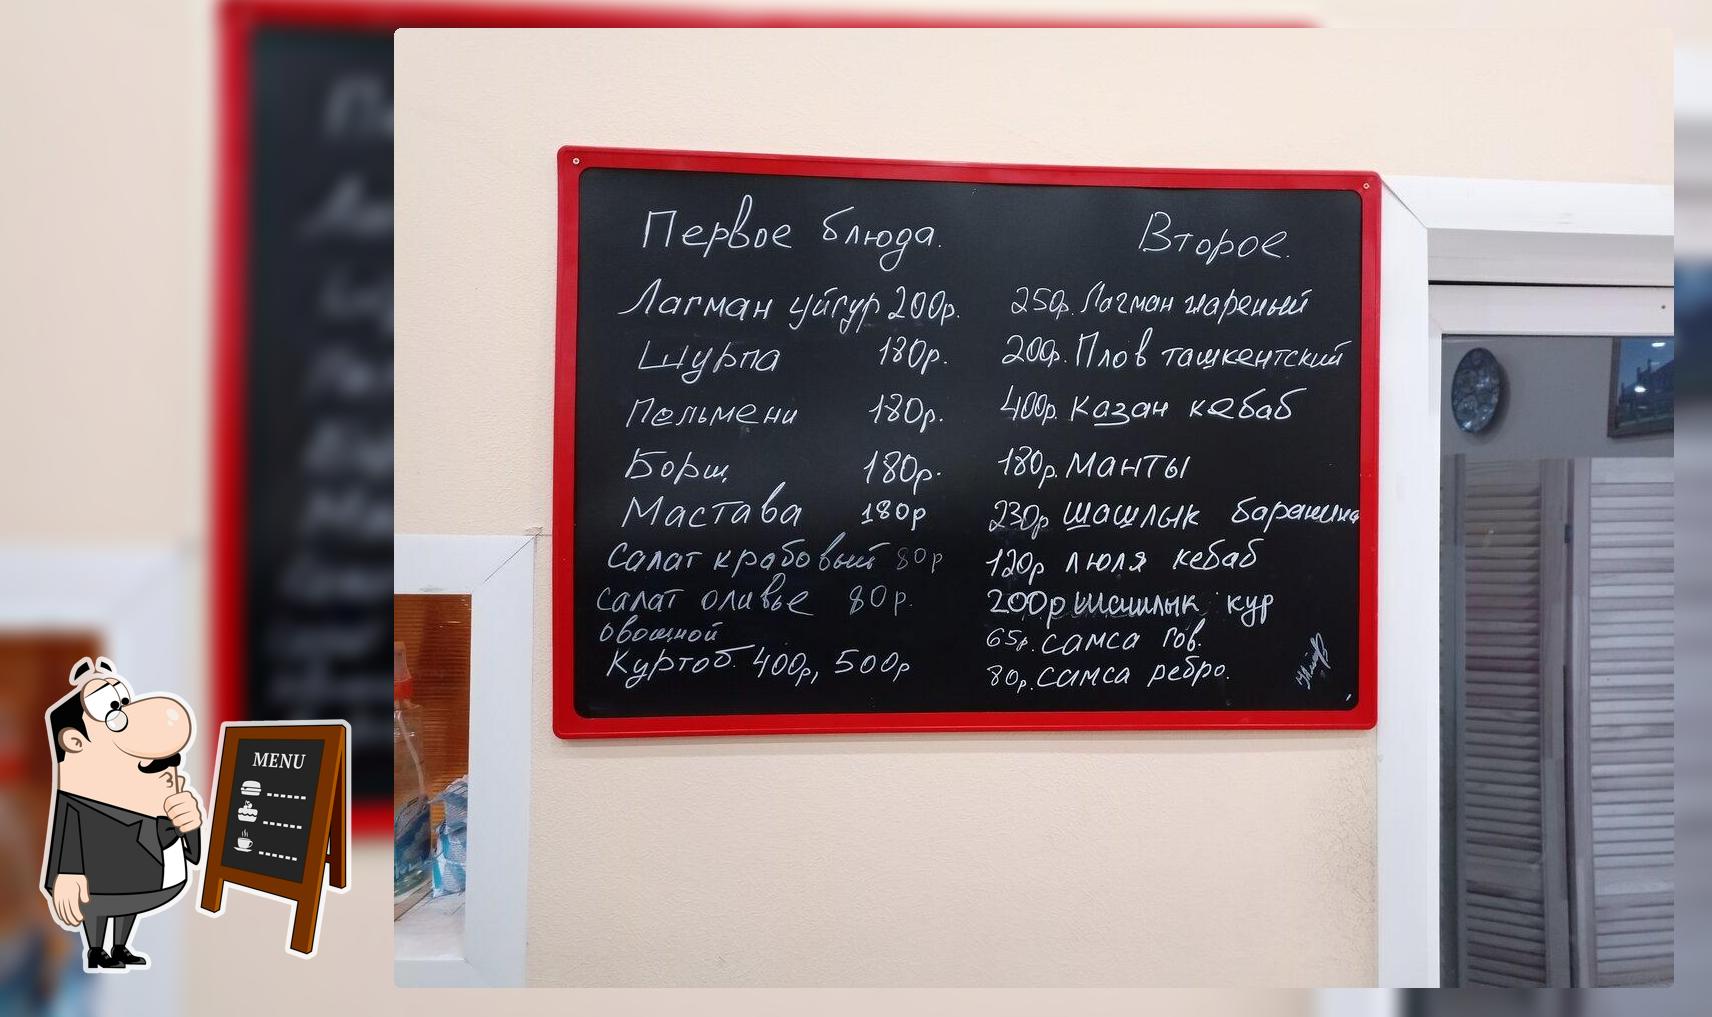 Первое блюда.
Лагман уйгур 200р.
Шурпа 180р.
Пельмени 180р.
Борщ 180р.
Мастава 180р
Салат крабовый 80р
Салат оливье 80р.
овощной
Куртоб. 400р, 500р
Второе.
250р. Лагман жареный
200р. Плов ташкентский
400р. Казан кебаб
180р. Манты
230р шашлык баранина
120р люля кебаб
200р шашлык кур
65р. самса гов.
80р. самса ребро.
MENU